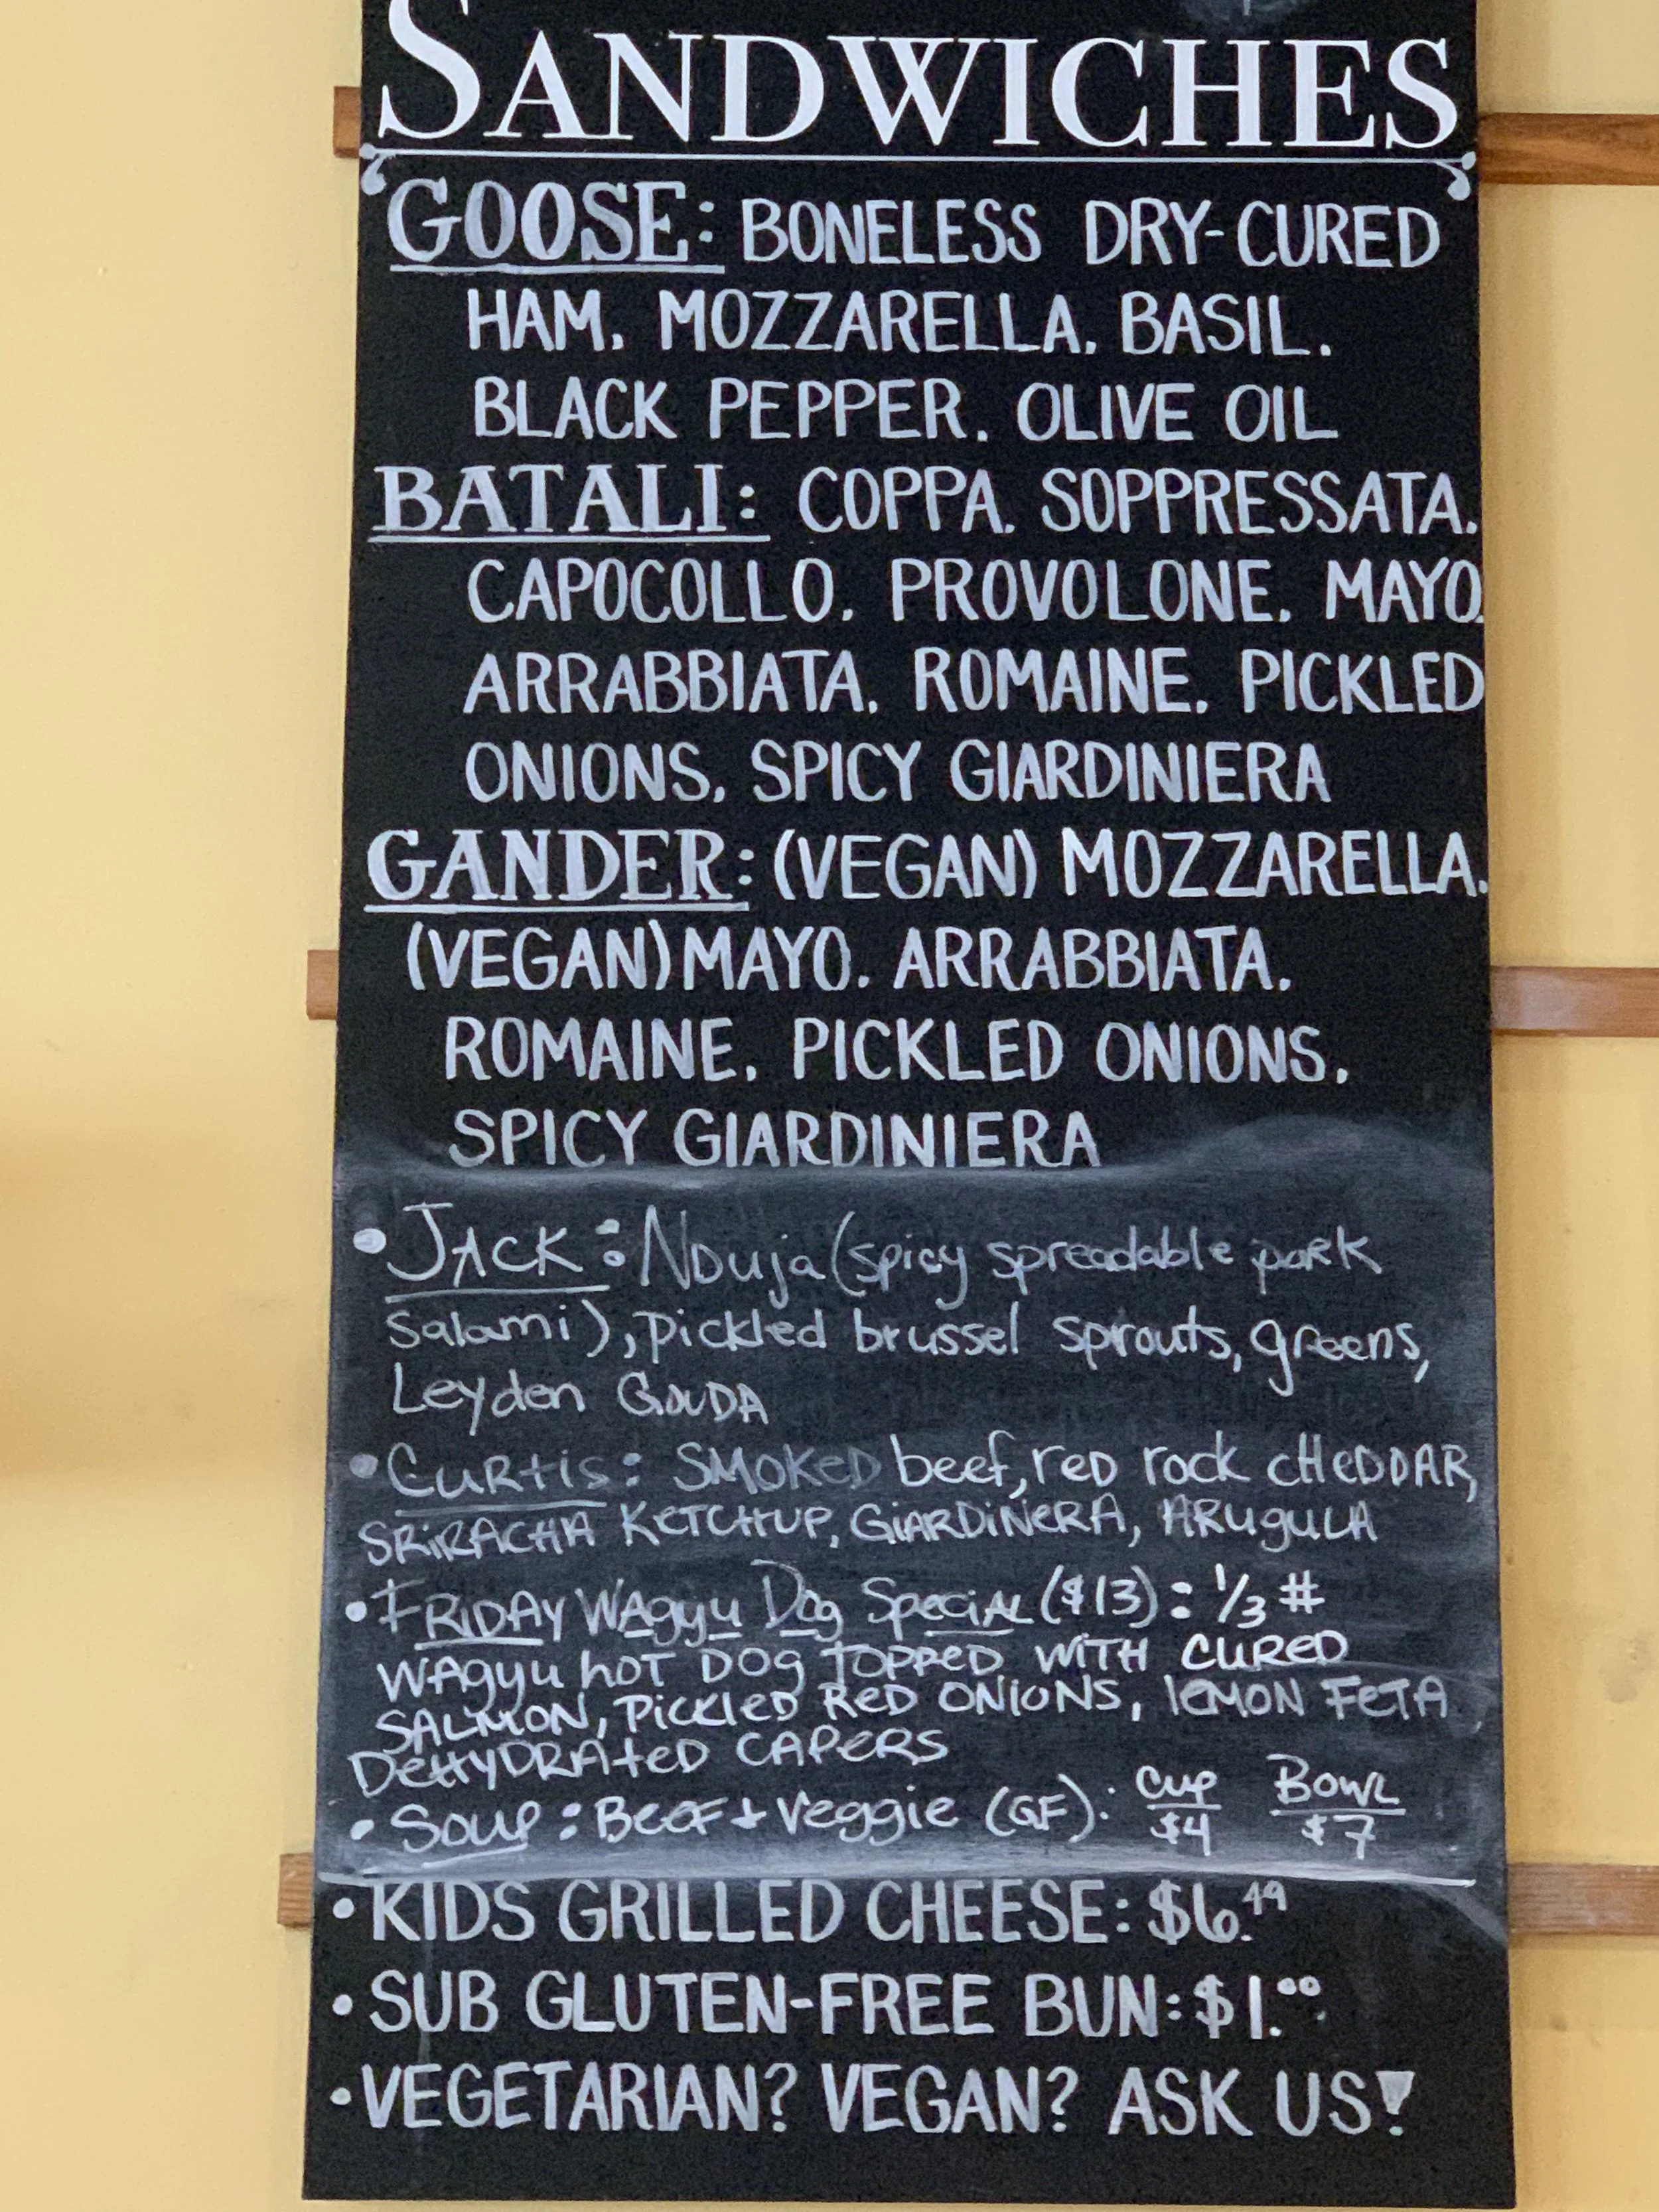 SANDWICHES
GOOSE: BONELESS DRY-CURED
HAM. MOZZARELLA. BASIL.
BLACK PEPPER. OLIVE OIL
BATALI: COPPA. SOPPRESSATA.
CAPOCOLLO. PROVOLONE. MAYO.
ARRABBIATA. ROMAINE. PICKLED
ONIONS. SPICY GIARDINIERA
GANDER: (VEGAN) MOZZARELLA.
(VEGAN) MAYO. ARRABBIATA.
ROMAINE. PICKLED ONIONS.
SPICY GIARDINIERA
• JACK: NDuja (spicy spreadable pork
Salami), pickled brussel sprouts, greens,
Leyden GOUDA
• Curtis: SMOKED beef, reD rock cHeDDAR,
SRiRACHA KETCHUP, GiARDiNeRA, ARuguLA
• FRIDAY WAgyu Dog SpeciAL ($13): 1/3 #
WAgyu hOT DOg TOPPeD WiTH CUReD
SALMON, PickleD ReD ONiONS, leMON FeTA
DeHYDRAteD CAPeRS
• Soup: BeeF + Veggie (GF): Cup $4 BOWL $7
• KIDS GRILLED CHEESE: $6.49
• SUB GLUTEN-FREE BUN: $1.00
• VEGETARIAN? VEGAN? ASK US!